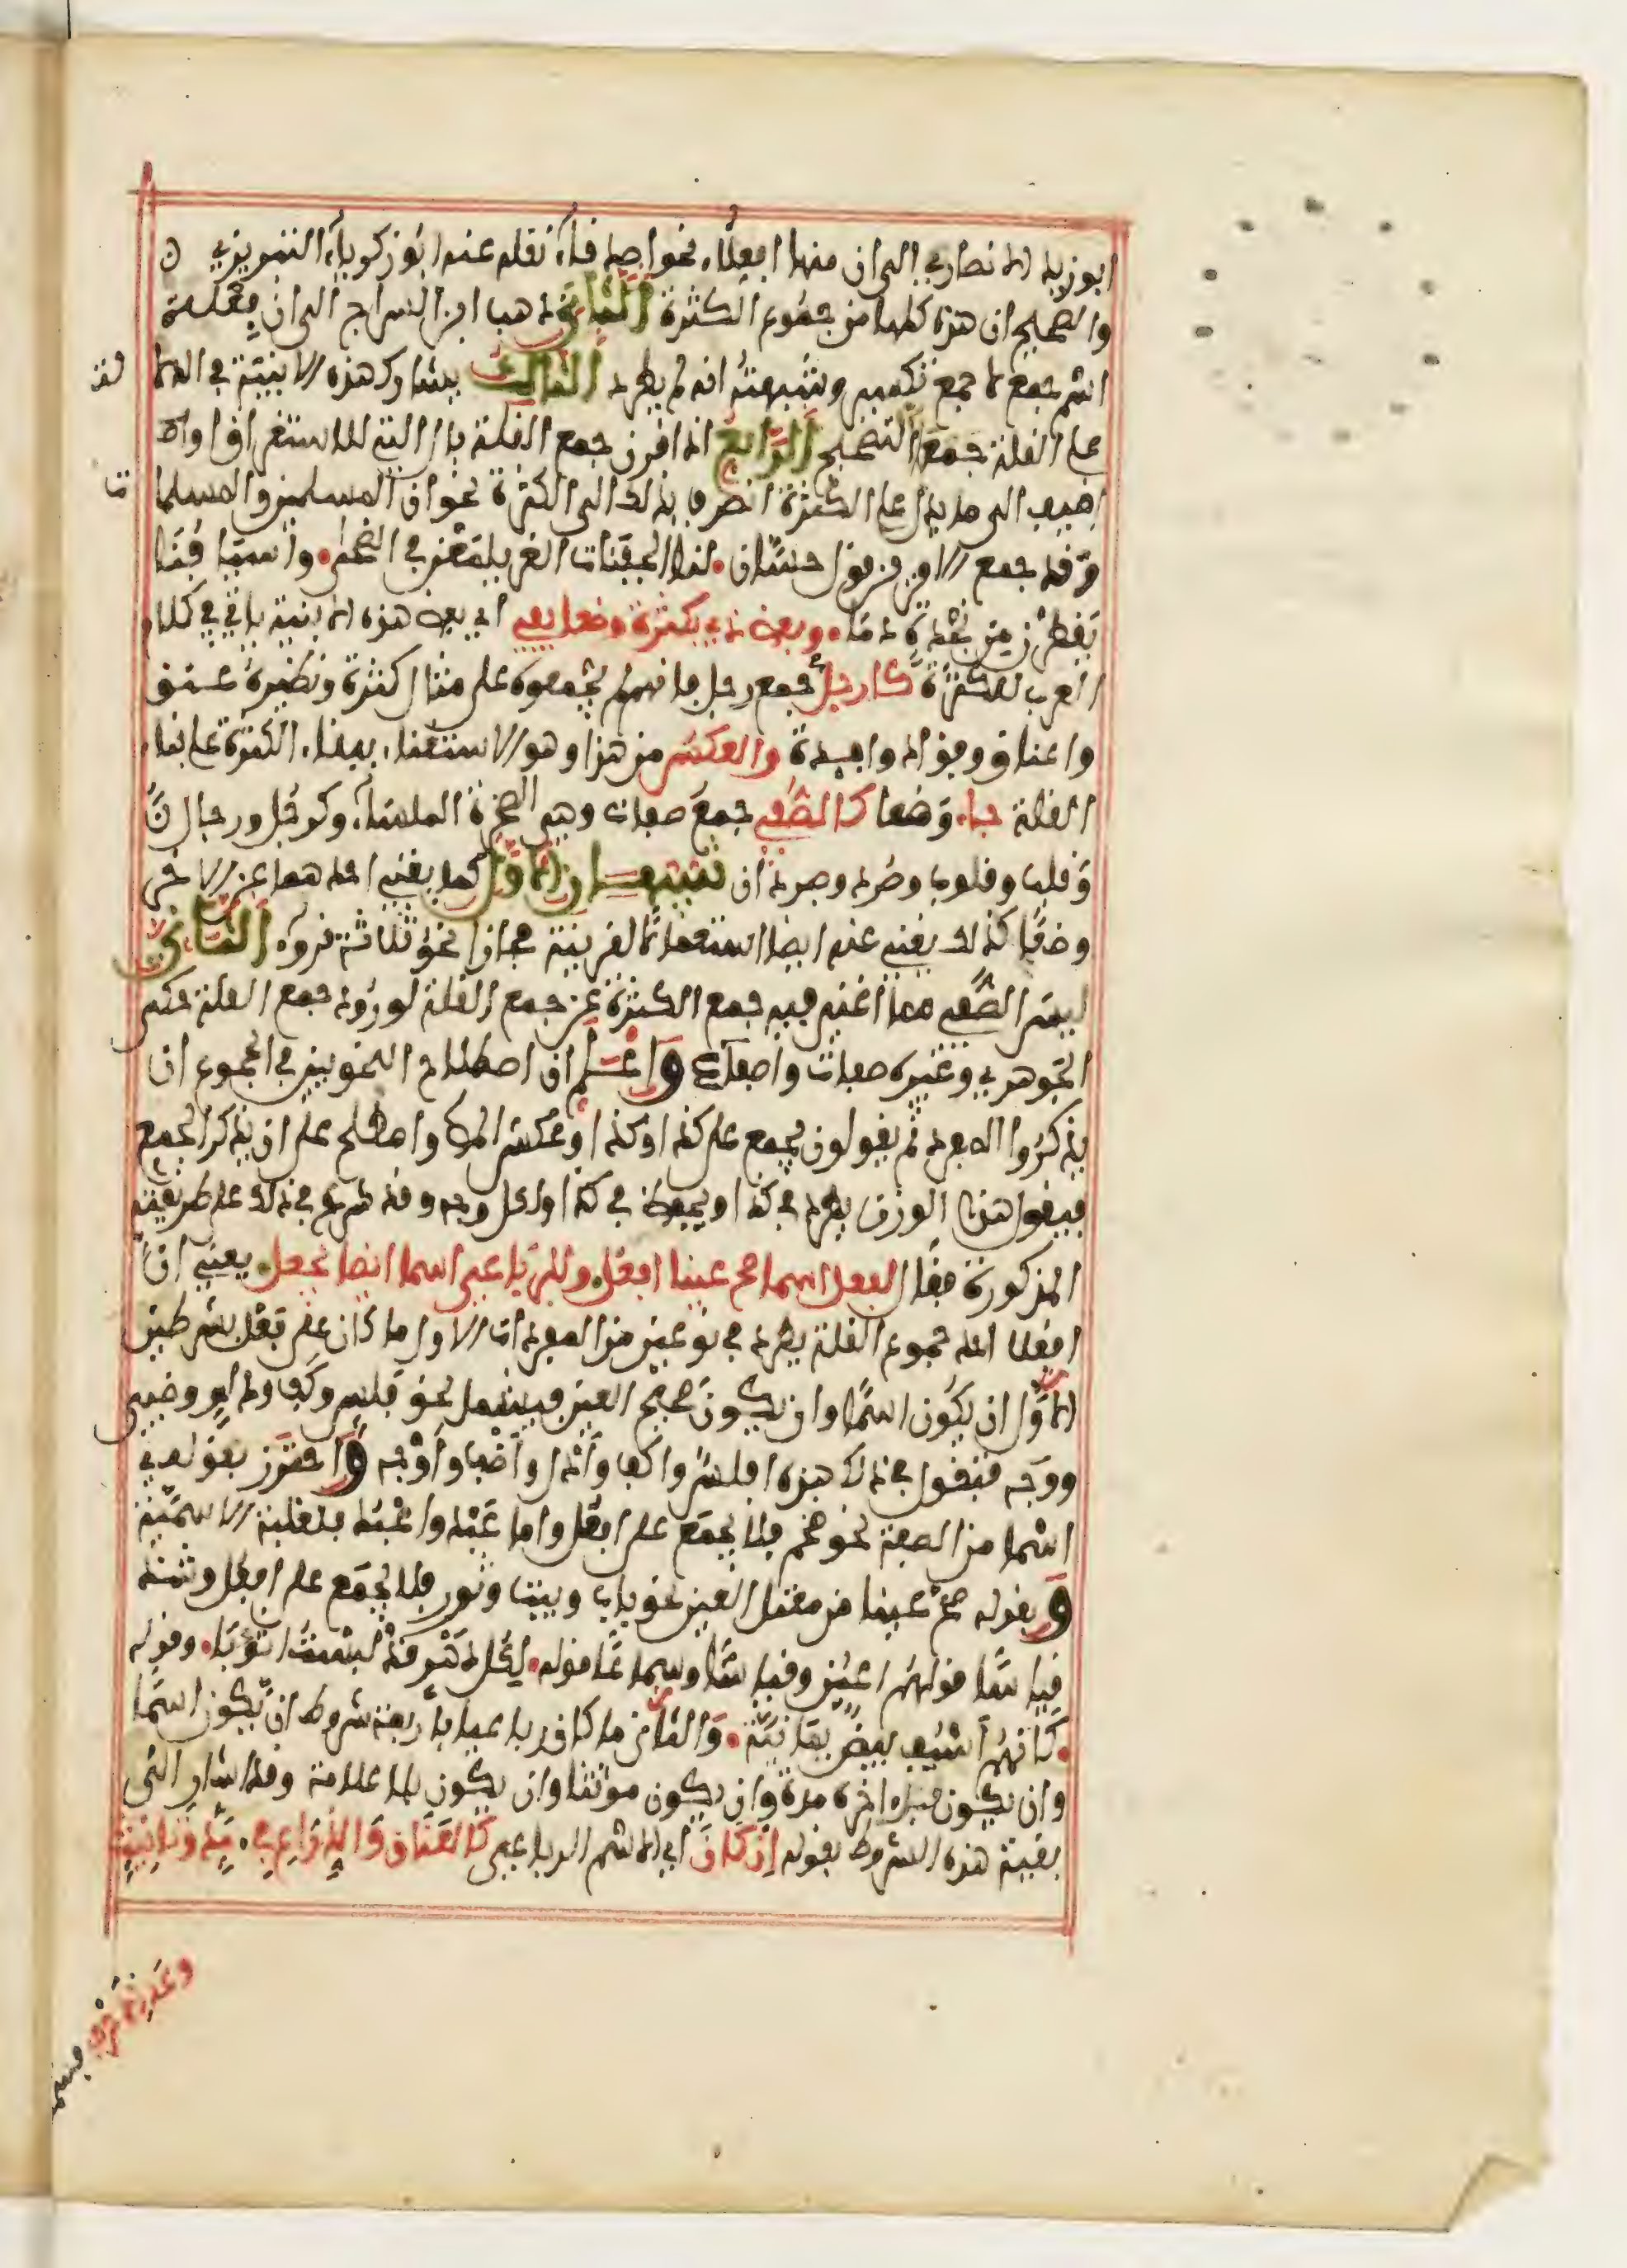 ابو زيد الانصاري الى ان منها افعلاء نحو اصدقاء نقله عنه ابو زكرياء التبريزي
والصحيح ان هذه كلها من جموع الكثرة الثاني ذهب ابن السراج الى ان فعلة
اسم جمع لا جمع تكسير وشبهته انه لم يطرد الثالث يشارك هذه الابنية في الدلالة
على القلة جمع التصحيح الرابع اذا قرن جمع القلة بال التي للاستغراق او
اضيف الى ما يدل على الكثرة انصرف بذلك الى الكثرة نحو ان المسلمين والمسلمات
وقد جمع الامرين قول حسان لنا الجفنات الغر يلمعن في الضحى واسيافنا
يقطرن من نجدة دما وبعض ذي بكثرة وضعا يفي اي بعض هذه الابنية ياتي في كلام
العرب للكثرة كارجل جمع رجل فانهم لم يجمعوه على مثال كثرة ونظيره عنق
واعناق وفؤاد وافئدة والعكس من هذا وهو الاستغناء ببناء الكثرة على بناء
القلة جاء وضعا كالصفي جمع صفاة وهي الصخرة الملساء وكرجل ورجال
وقلب وقلوب وصرد وصردان تنبيهان الاول كما يغني احدهما عن الاخر
وضعا كذلك يغني عنه ايضا استعمالا لقرينة مجازا نحو ثلاثة قروء الثاني
ليس الصفي مما اغني فيه جمع الكثرة عن جمع القلة لورود جمع القلة حكى
الجوهري وغيره صفاة واصفاء واعلم ان اصطلاح النحويين في الجموع ان
يذكروا المفرد ثم يقولون يجمع على كذا او كذا وعكس المص واصطلح على ان يذكر الجمع
فيقول هذا الوزن يطرد في كذا ويحفظ في كذا ولكل وجه وقد شرع في ذلك على طريقته
المذكورة فقال لفعل اسما صح عينا افعل وللرباعي اسما ايضا يجعل يعني ان
افعلا احد جموع القلة يطرد في نوعين من المفردات الاول ما كان على فعل بشرطين
الاول ان يكون اسما وان يكون صحيح العين فيشمل نحو فلس وكف ودلو وظبي
ووجه فتقول في ذلك هذه افلس واكف وادل واظب واوجه واحترز بقوله
اسما من الصفة نحو ضخم فلا يجمع على افعل واما عبد واعبد فلغلبة الاسمية
وبقوله صح عينا من معتل العين نحو باب وبيت وثور فلا يجمع على افعل وشذ
قياسا قولهم اعين وقياسا وسماعا قوله لكل دهر قد لبست اثوبا وقوله
كانهم اسيف بيض يمانية والثاني ما كان رباعيا باربعة شروط ان يكون اسما
وان يكون قبل اخره مدة وان يكون مؤنثا وان يكون بلا علامة وقد اشار الى
بقية هذه الشروط بقوله ان كان اي الاسم الرباعي كالعناق والذراع في مد وتانيث
وعد الاحرف